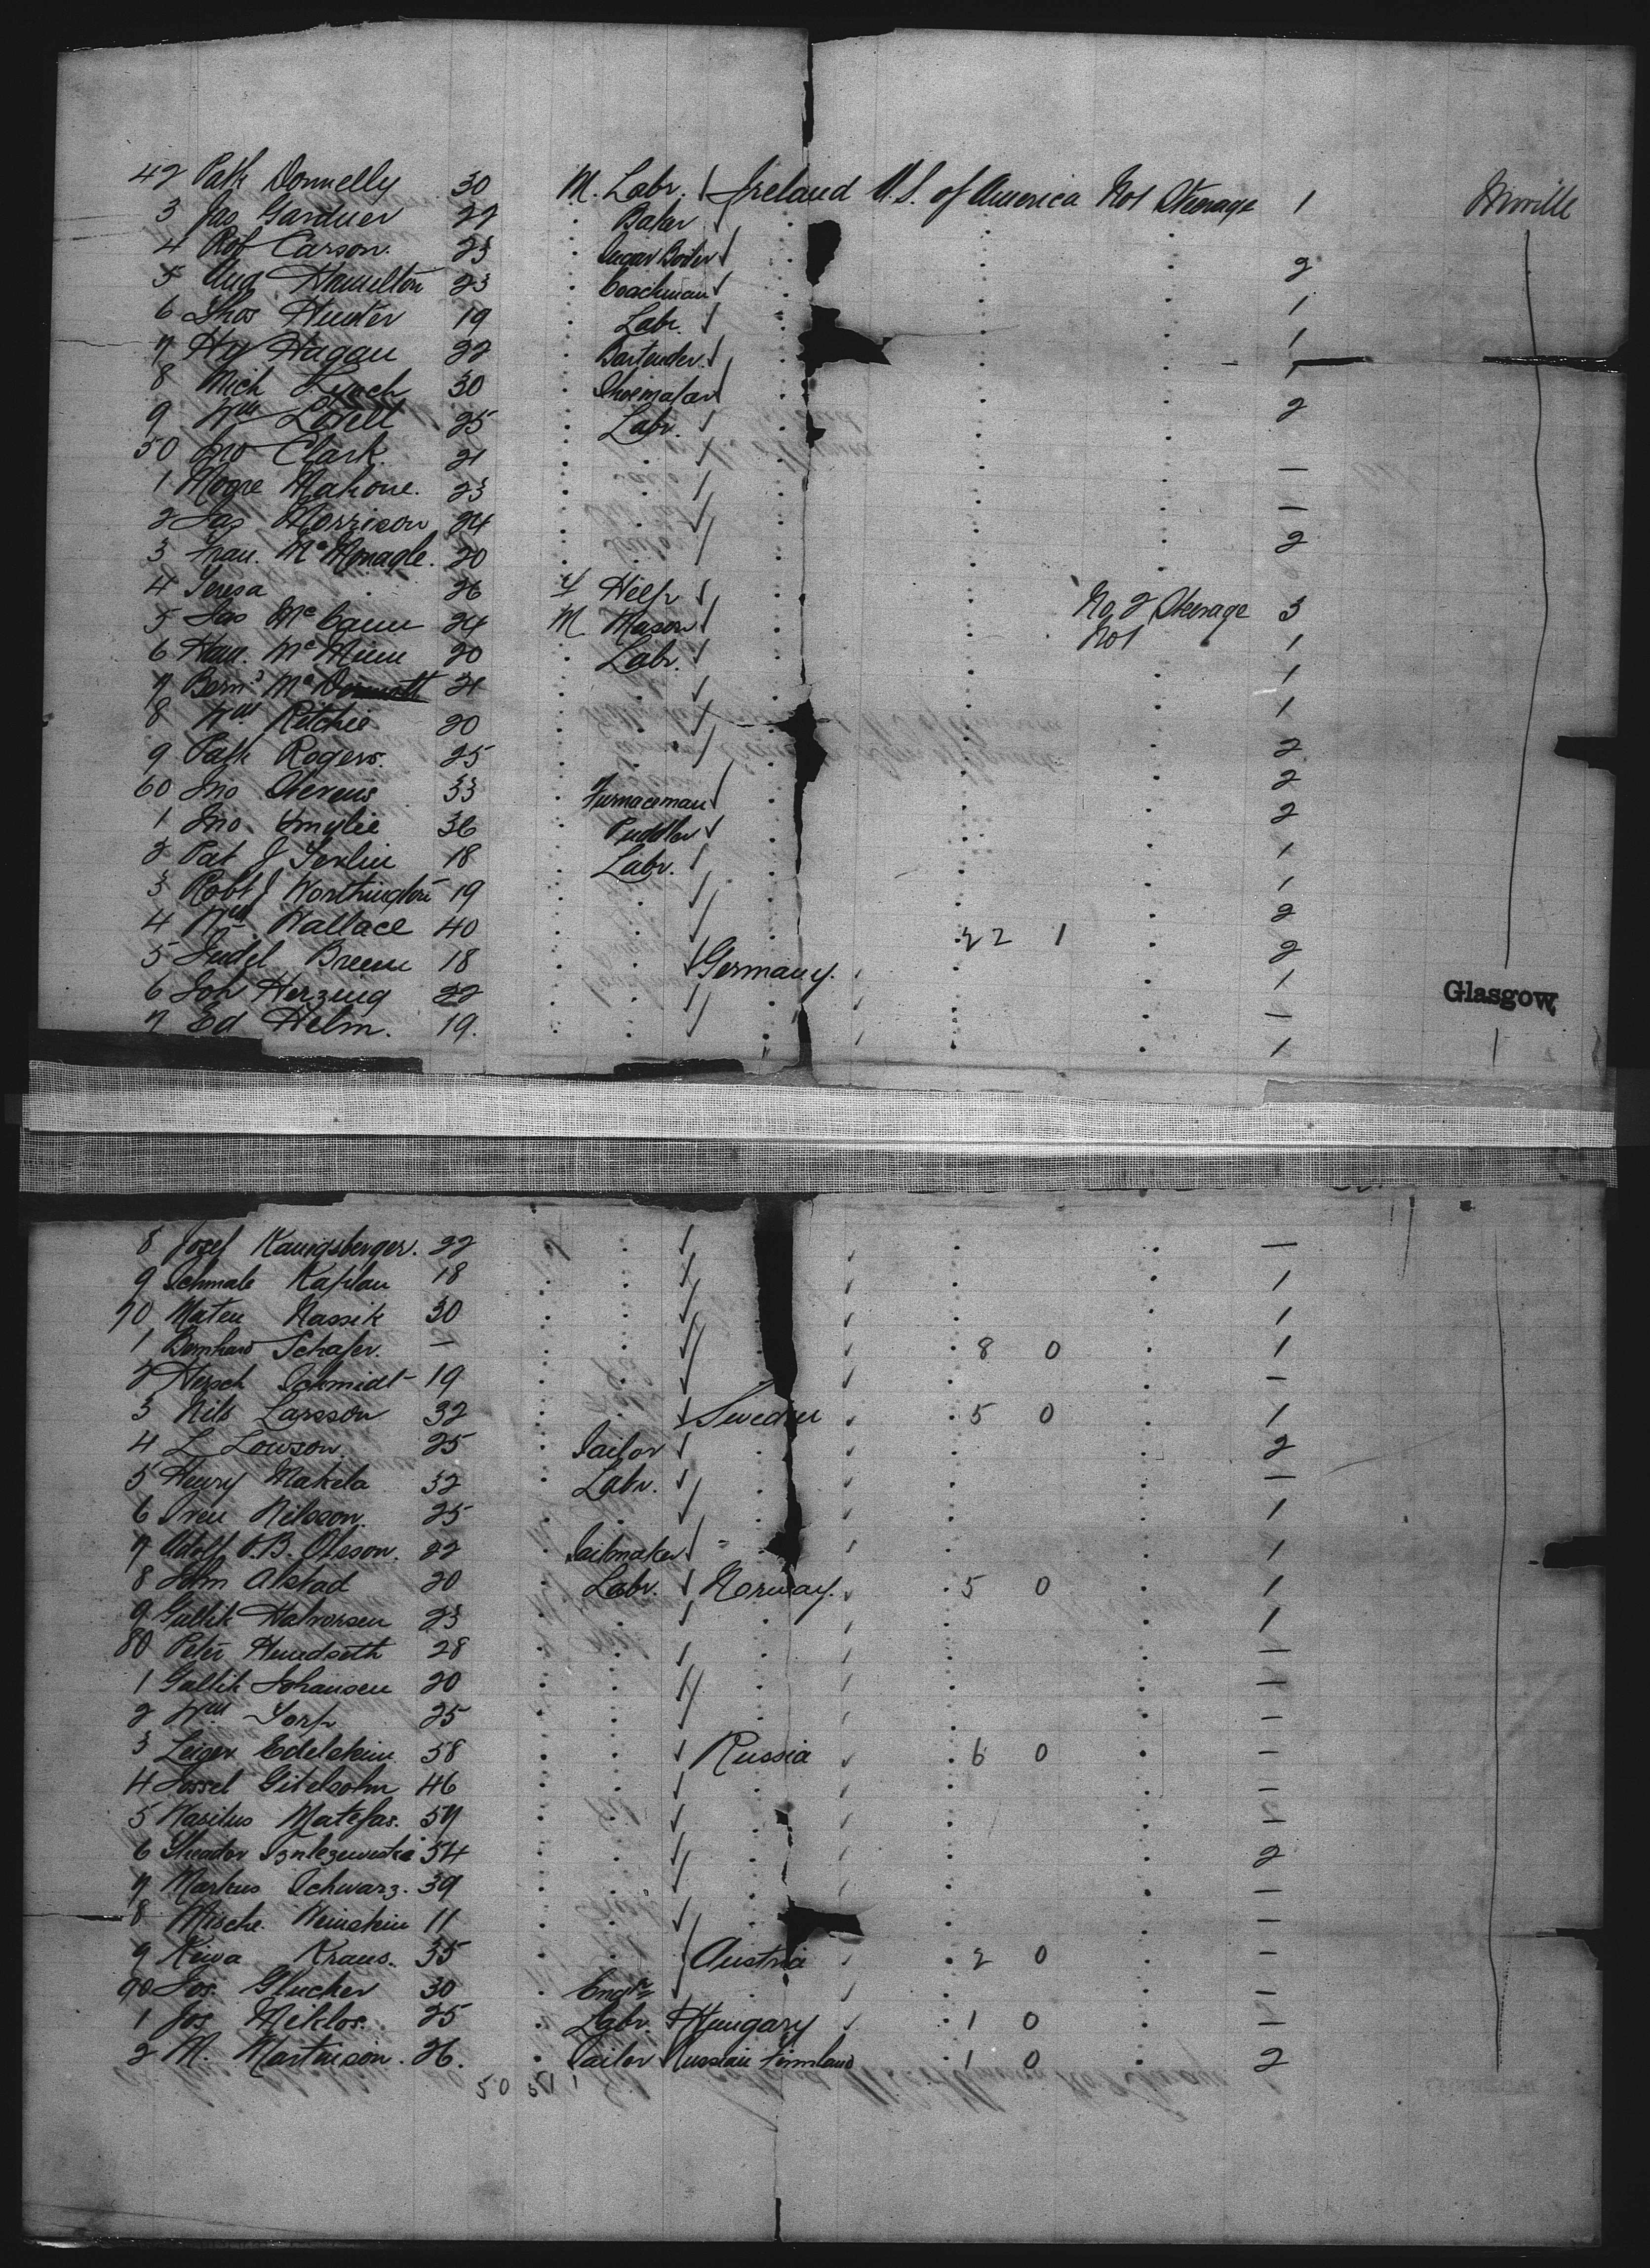 42 Patk Donnelly 30 M. Labr. Ireland U.S. of America No1 Steerage 1 Moville
3 Jas Gardner 22 Baker
4 Robt Carson. 23 Sugar Boiler 2
5 Aug Hamilton 23 Coachman 1
6 Thos Hunter 19 Labr. 1
7 Hy Hagan 22 Bartender 1
8 Mich Lynch 30 Shoemaker 2
9 Wm 25 Labr.
50 Jno Clark. 21 —
1 Mogre Mahone. 23 —
2 Jas Morrison 24 2
3 Fran. McMonagle. 20
4 Teresa 26 F Help No 2 Steerage 3
5 Jas McCann 24 M Mason No1 1
6 McMunn 20 Labr. 1
7 Bernd 21 1
8 Wm Ritchie 20 2
9 Patk Rogers. 25 2
60 Jno Stevens 33 Furnaceman 2
1 Jno Smylie 36 Puddler 1
2 Pat J 18 Labr. 1
3 Robt J Worthington 19 2
4 Wm Wallace 40 22 1 2
5 Judel 18 Germany. 1
6 Joh Herzing 22 — Glasgow
7 Ed Helm. 19. 1
8 Josef Kanigsberger. 22 —
9 Schmale Kaplan 18 1
70 Mateu Nassik 30 1
1 Bernhard Schafer. — 8 0 1
2 Hersch Schmidt 19 —
3 Nils Larsson 32 Sweden 5 0 1
4 L Lowson 25 Sailor 2
5 Henry Makela 32 Labr. —
6 Sven Nilsson. 25 1
7 Adolf O.B. Olsson. 22 Sailmaker " 1
8 John Alstad 20 Labr. Norway. 5 0 1
9 Gullik Halvorsen 23 1
80 Peter Hundseth 28 —
1 Gullik Johansen 20 —
2 Wm 25 —
3 Leiger Edelstein 58 Russia 6 0 —
4 Jossel Gitelsohn 46 —
5 Wasilus Matefas. 57 —
6 Theador 54 2
7 Markus Schwarz. 39 —
8 Mische. Weinstein 11 —
9 Kiwa Kraus. 35 Austria 2 0 —
90 Jos. Glucker 30 Engr —
1 Jos Miklos. 25 Labr. Hungary 1 0 —
2 M. Martinson. 26. Tailor Russian Finnland 1 0 2
50 51 1